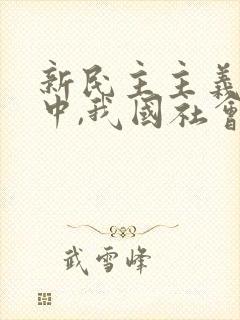 新民主主義
中,我國社會
武雪峰